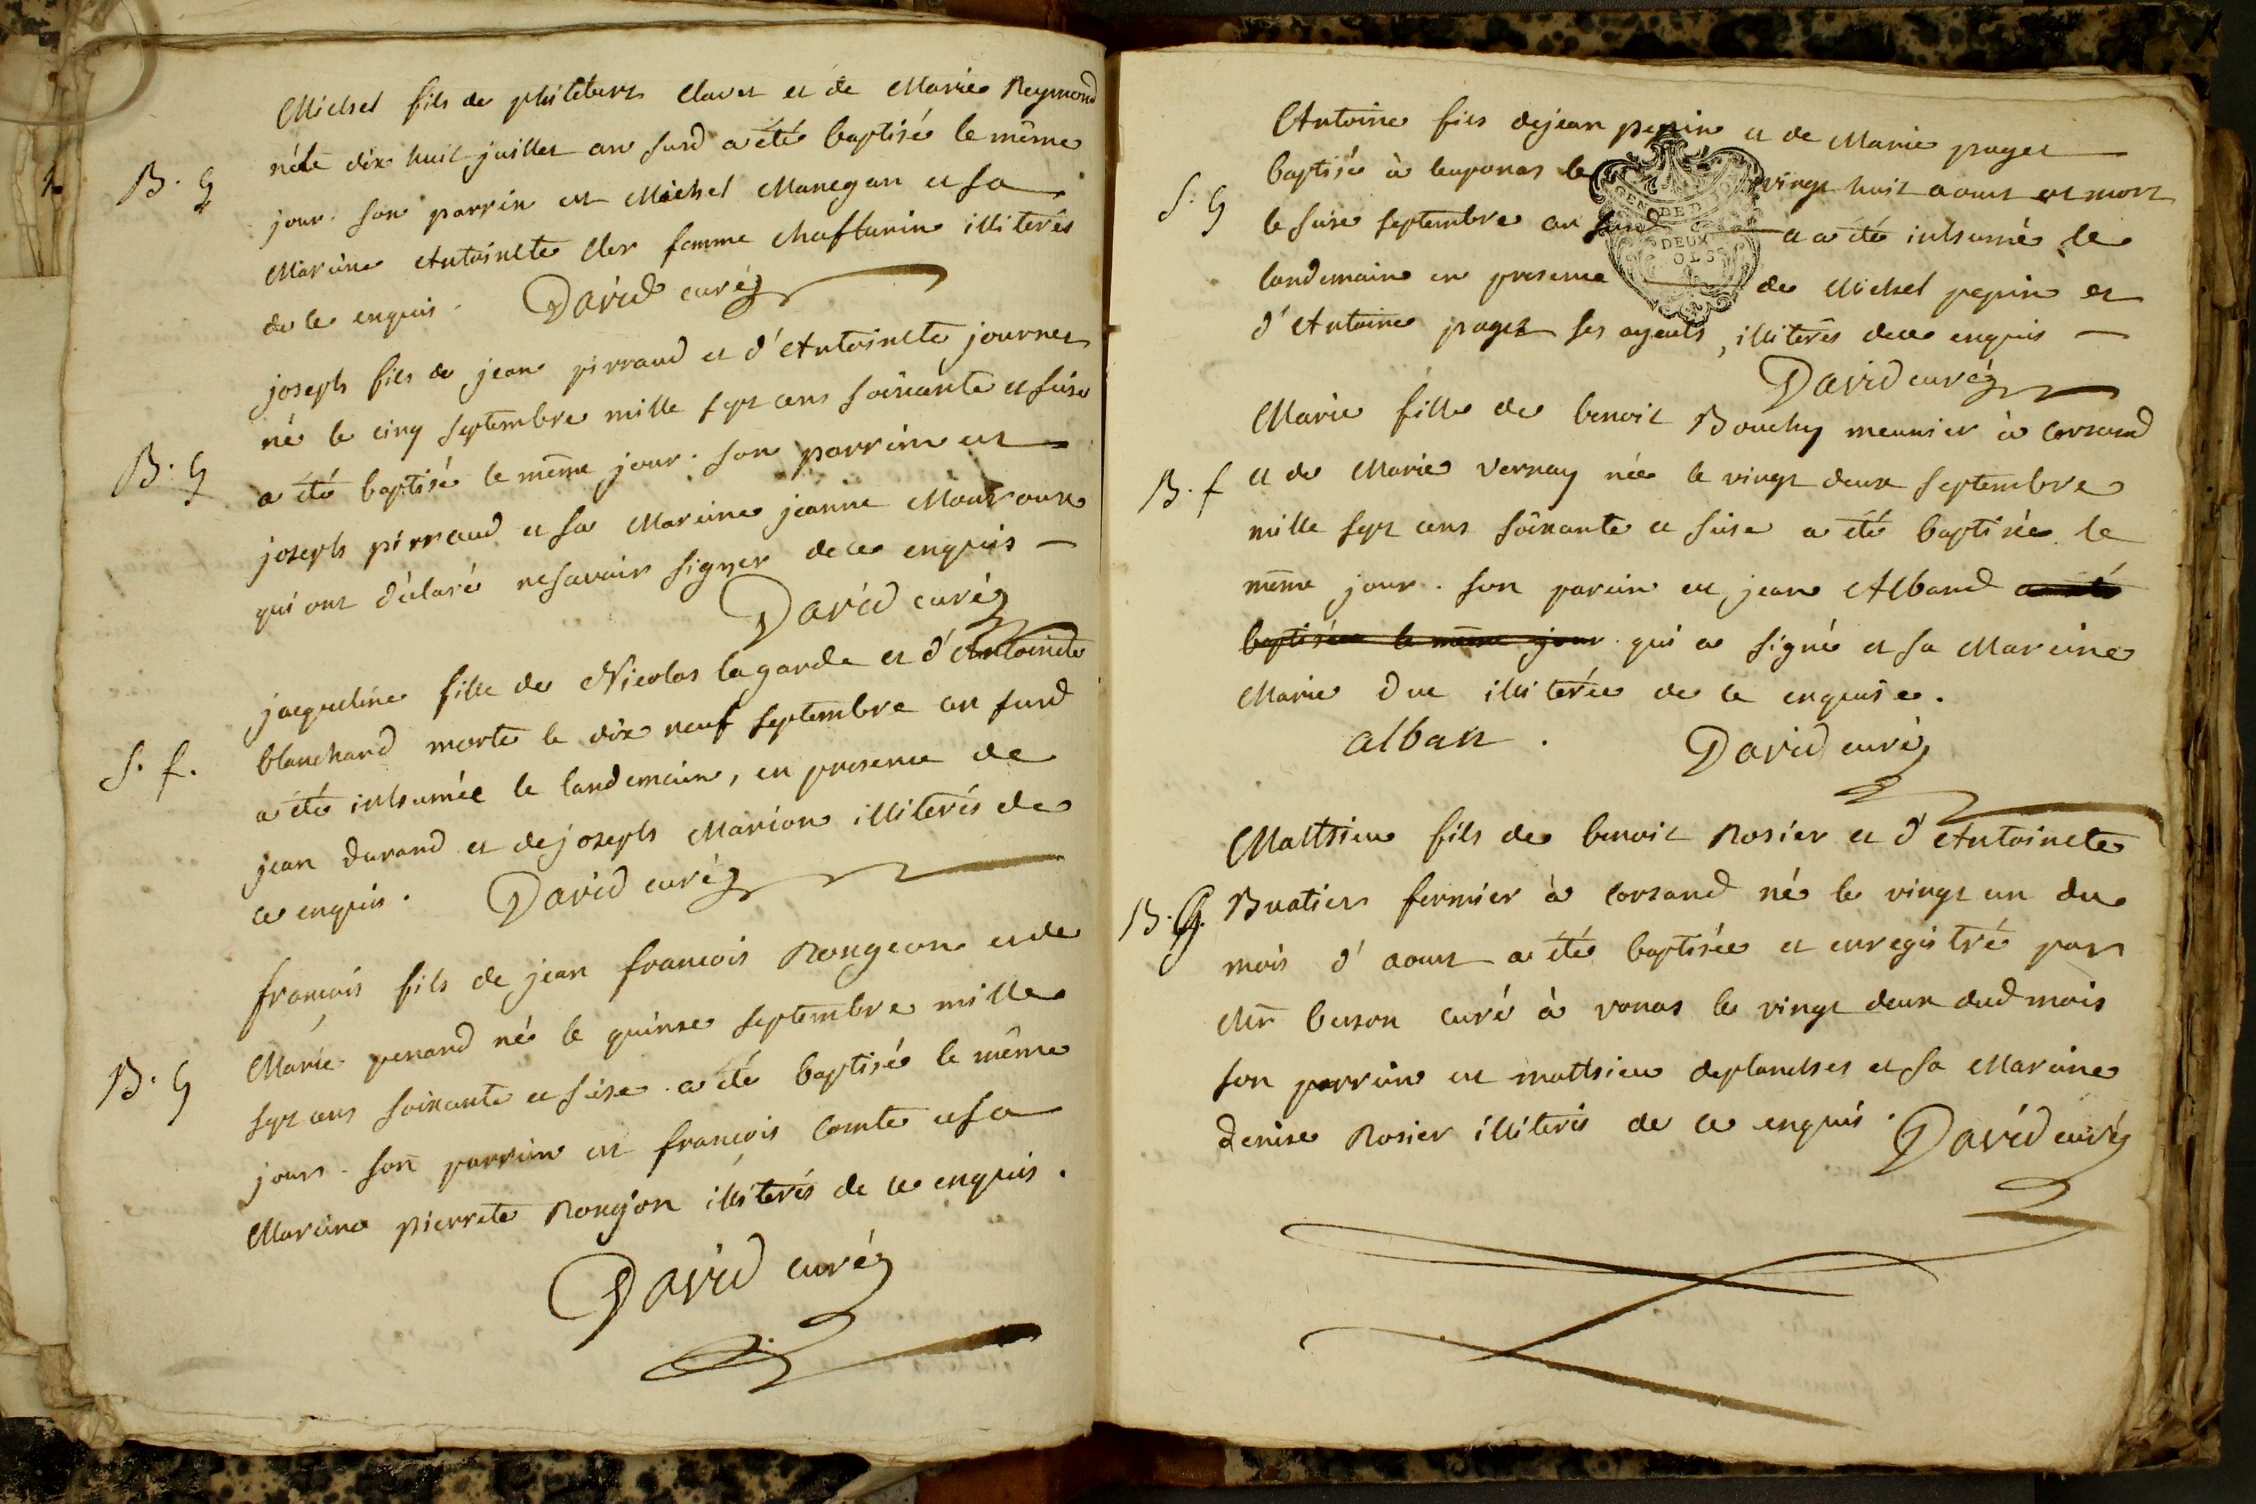 Michel fils de philibert Clavet et de Marie Reymond
né le dix huit juillet an susd a été baptisé le même
B. G
jour. son parrin est Michel Manegan et sa
Mareine Antoinette Cler femme Chaffurin illiterés
de ce enquis. David curé
joseph fils de jean pirraud et d'Antoinette journet
né le cinq septembre mille sept cens soixante et seise
B. G
a été baptisé le même jour. son parrein est
joseph pirraud et sa Mareine jeanne Montroux
qui ont déclaré ne savoir signer de ce enquis
David curé
jacqueline fille de Nicolas lagarde et d'Antoinete
blanchard morte le dix neuf septembre an susd
S. f.
a été inhumée le landemain, en presence de
jean durand et de joseph Marion illiterés de
ce enquis. David curé
francois fils de jean francois Rougeon et de
Marie penard né le quinse septembre mille
B. G
sept cens soixante et seise a été baptisé le même
jours. son parrein est francois Comte et sa
Mareine pierrete Roujon illiterés de ce enquis.
David curé
Antoine fils de jean pepin et de Marie paget
baptisé à leyponas le vingt huit aoust et mort
S. G
le seise septembre an susd a été inhumé le
GEN DE D
DEUX
SOLS
landemain en presence de Michel pepin et
d'Antoine paget ses ayeuls, illiterés de ce enquis
David curé
Marie fille de benoit Bouchy meunier à Corsand
B. f
et de Marie Vernay née le vingt deux septembre
mille sept cens soixante et seise a été baptisée le
même jour. son parein est jean Alband a été
baptisée le même jour qui a signé et sa Mareine
Marie Duc illiterée de ce enquise.
alban. David curé
Matthieu fils de benoit Rosier et d'Antoinete
B. G.
Buatier fermier à Corsand né le vingt un du
mois d'aoust a été baptisée et enregistré par
Mr buson curé à vonas le vingt deux dud mois
son parrein est matthieu deplanches et sa Mareine
denise Rosier illiterés de ce enquis. David curé